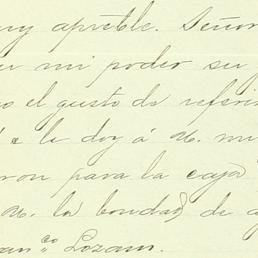 muy apreble. Señor
en mi poder su
o el gusto de referir
é le doy á U. mu
ron para la caja
U. la bondad de a
an.co Lozano.